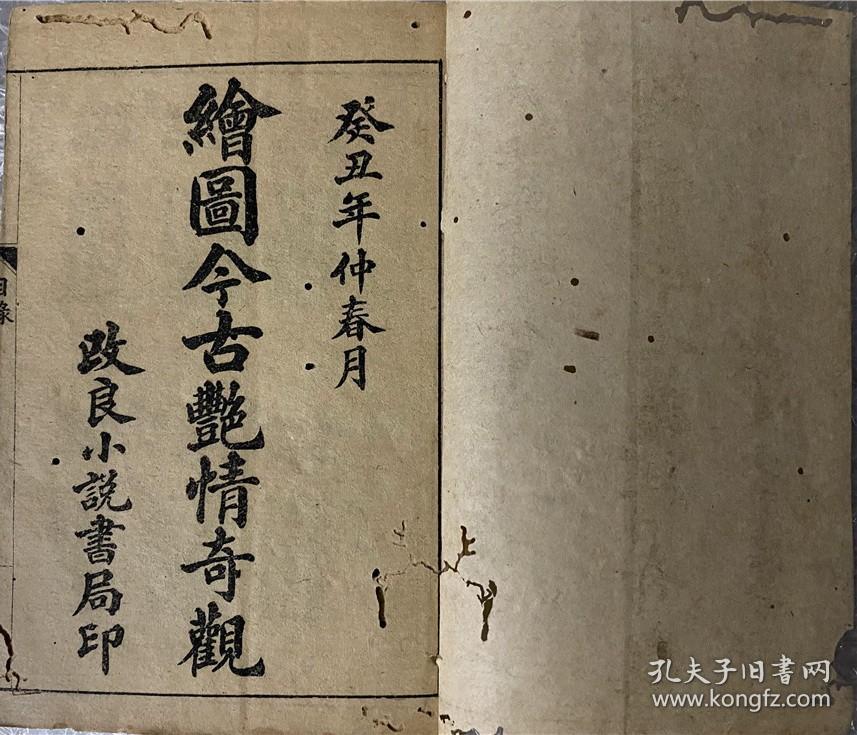 癸丑年仲春月
繪圖今古艷情奇觀
改良小說書局印
目錄
孔夫子旧书网
www.kongfz.com